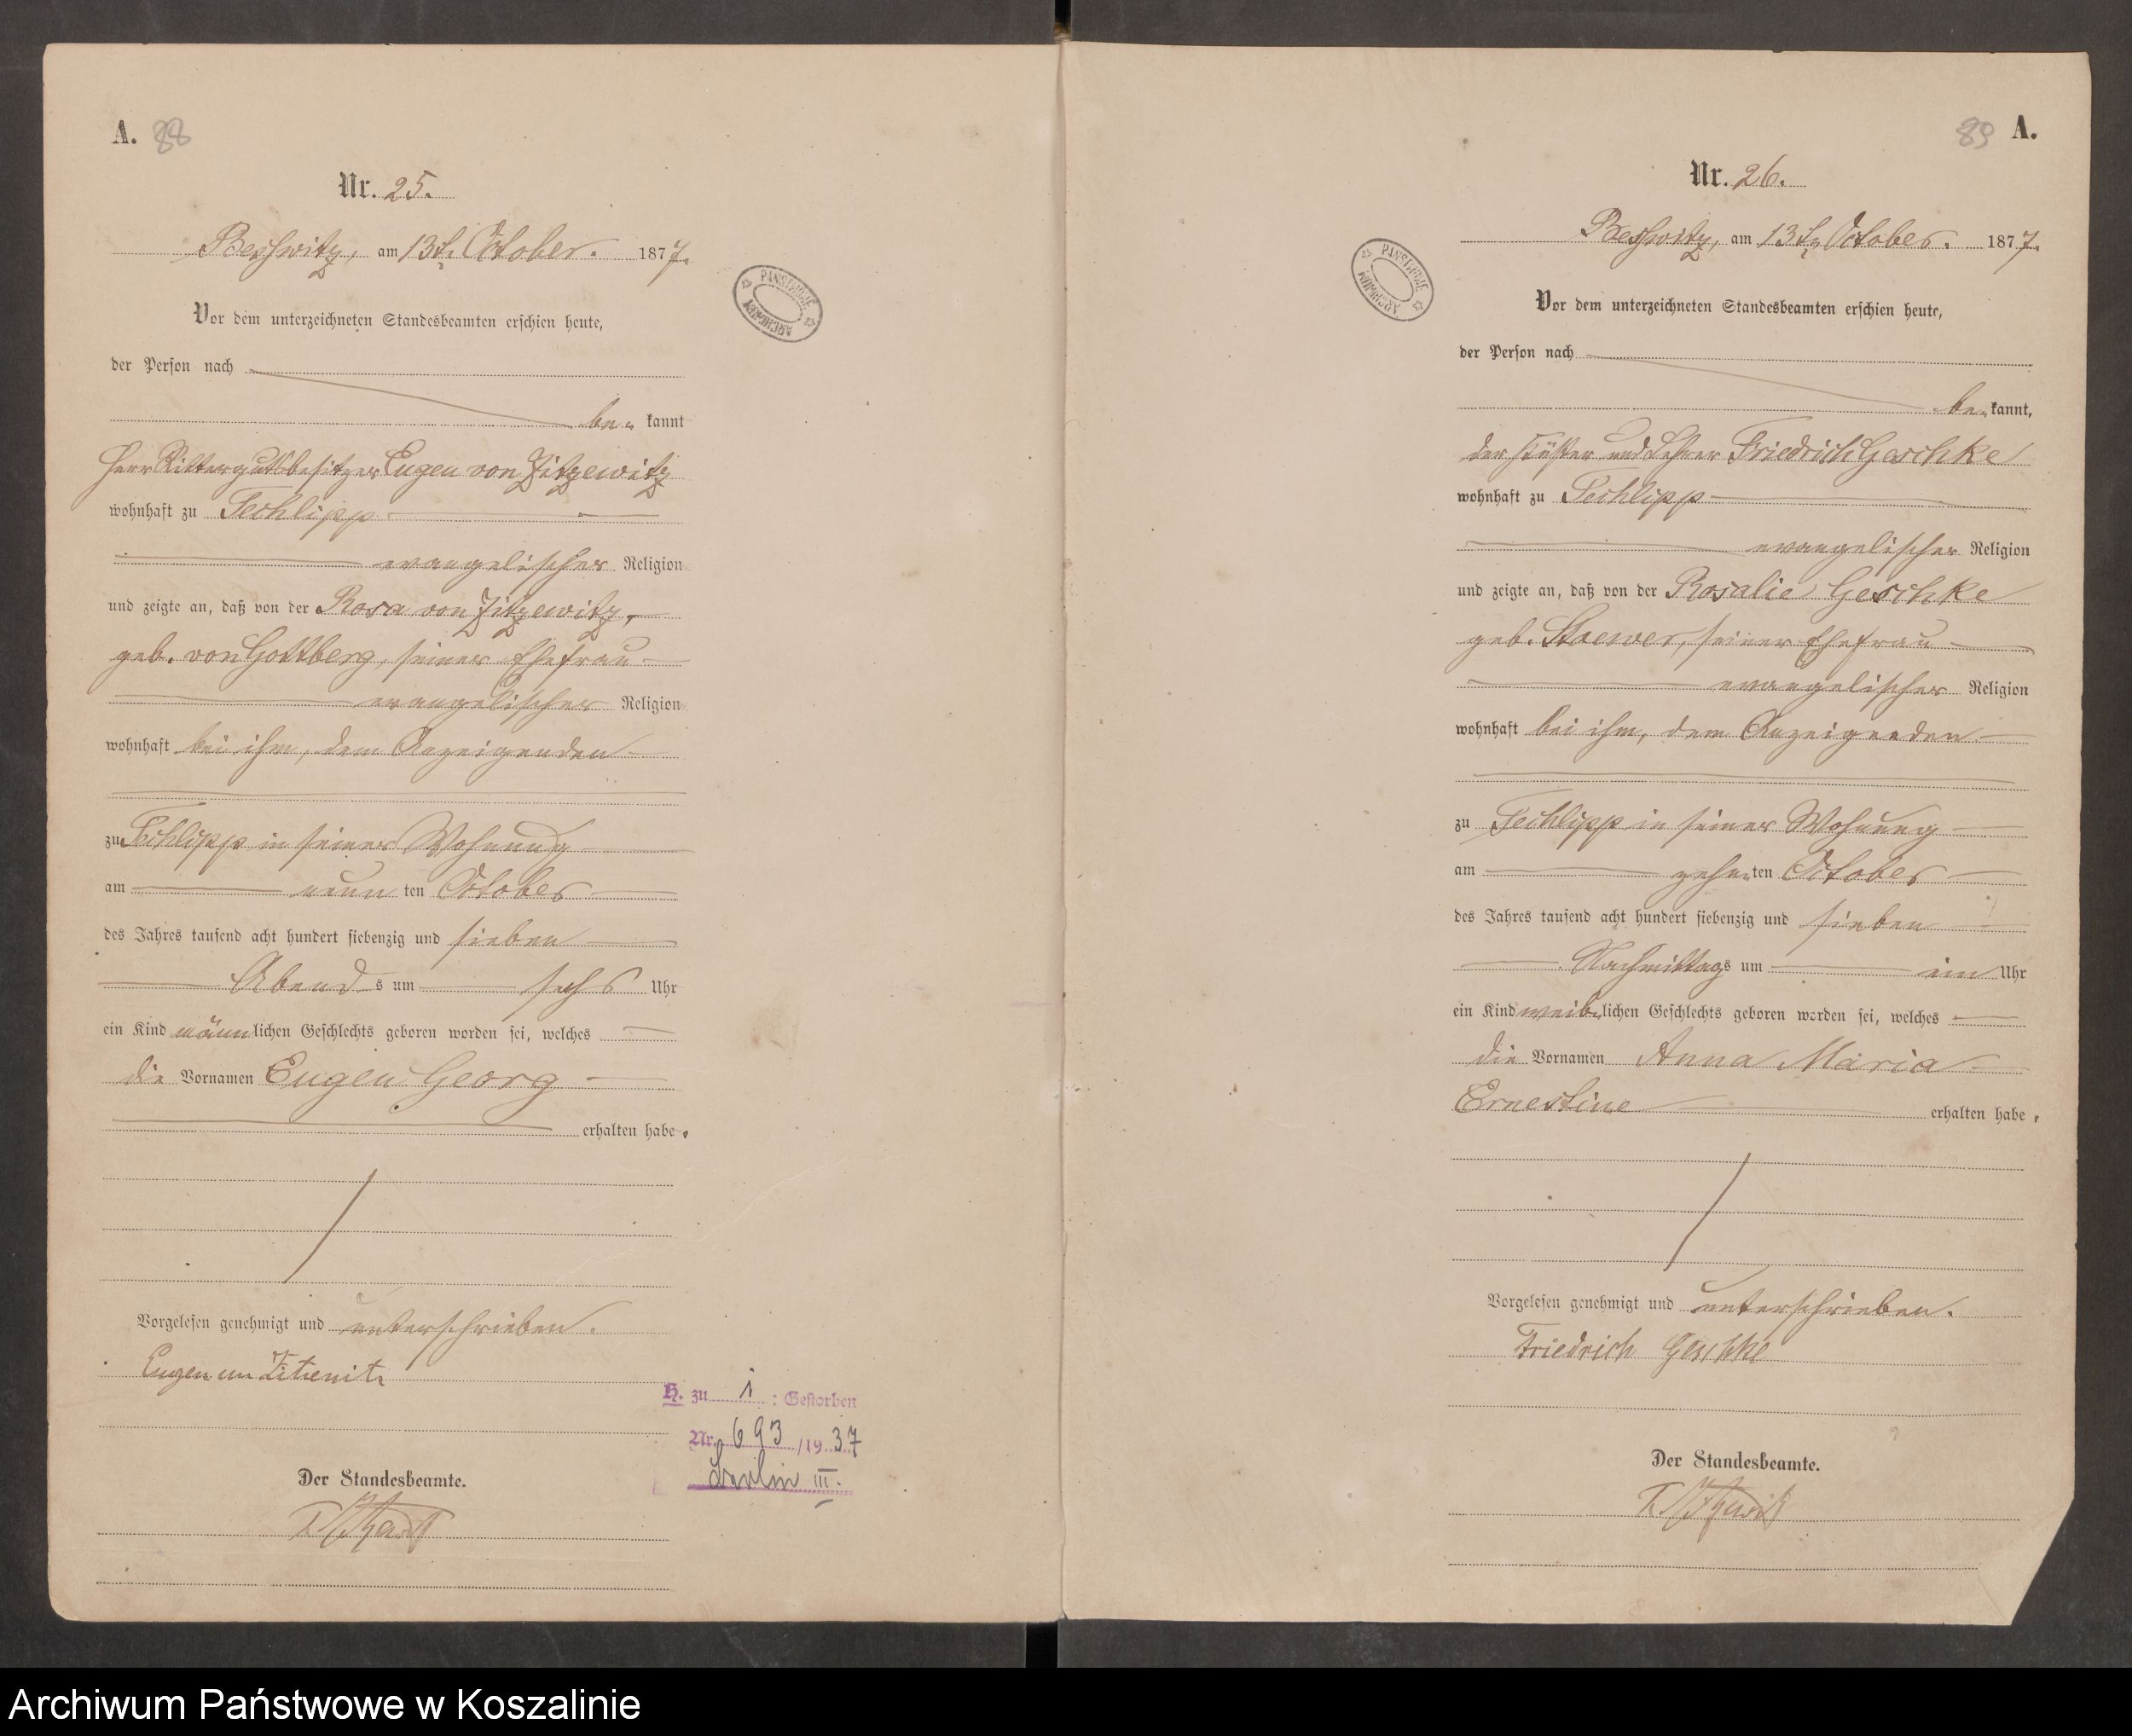 A. 88
Nr. 25.
Beßwitz, am 13t October. 1877.
Vor dem unterzeichneten Standesbeamten erschien heute,
der Person nach
be- kannt
Herr Rittergutsbesitzer Eugen von Zitzewitz
wohnhaft zu Techlipp
evangelischer Religion
und zeigte an, daß von der Rosa von Zitzewitz,
geb. von Gottberg, seiner Ehefrau
evangelischer Religion
wohnhaft bei ihm, dem Anzeigenden
zu Techlipp in seiner Wohnung
am neun ten October
des Jahres tausend acht hundert siebenzig und sieben
Abend s um sechs Uhr
ein Kind männlichen Geschlechts geboren worden sei, welches
die Vornamen Eugen Georg
erhalten habe.
Vorgelesen genehmigt und unterschrieben.
Eugen von Zitzewitz
Der Standesbeamte.
H. zu 1 : Gestorben
Nr. 693 /19 37
Berlin III.
PANSTWOWE ARCHIWUM
89 A.
Nr. 26.
Beßwitz, am 13t October. 1877.
Vor dem unterzeichneten Standesbeamten erschien heute,
der Person nach
be- kannt,
der Küster und Lehrer Friedrich Geschke
wohnhaft zu Techlipp
evangelischer Religion
und zeigte an, daß von der Rosalie Geschke
geb. Stoewer, seiner Ehefrau
evangelischer Religion
wohnhaft bei ihm, dem Anzeigenden
zu Techlipp in seiner Wohnung
am zehn ten October
des Jahres tausend acht hundert siebenzig und sieben
Nachmittags um ein Uhr
ein Kind weiblichen Geschlechts geboren worden sei, welches
die Vornamen Anna Maria
Ernestine erhalten habe.
Vorgelesen genehmigt und unterschrieben.
Friedrich Geschke
Der Standesbeamte.
PANSTWOWE ARCHIWUM
Archiwum Państwowe w Koszalinie